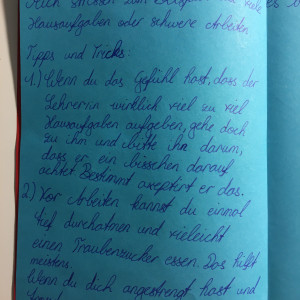 stressen zum viele es
Hausaufgaben oder schwere Arbeiten
Tipps und Tricks:
1.) Wenn du das Gefühl hast, dass der
Lehrer/in wirklich viel zu viel
Hausaufgaben aufgeben, gehe doch
zu ihn und bitte ihn darum,
dass er ein bisschen darauf
achtet. Bestimmt akzeptiert er das.
2.) Vor Arbeiten kannst du einmal
tief durchatmen und vieleicht
einen Traubenzucker essen. Das hilft
meistens.
Wenn du dich angestrengt hast und